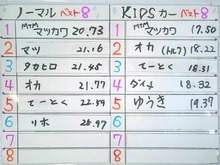 ノーマル ベスト8
1 MTM マツカワ 20.73
2 マツ 21.16
3 タカヒロ 21.45
4 オカ 21.77
5 てーとく 22.59
6 リホ 28.97
7
8
KIDSカー ベスト8
1 MTM マツカワ 17.50
2 オカ 18.22
3 てーとく 18.31
4 ダイメ 18.32
5 ゆうき
6
7
8